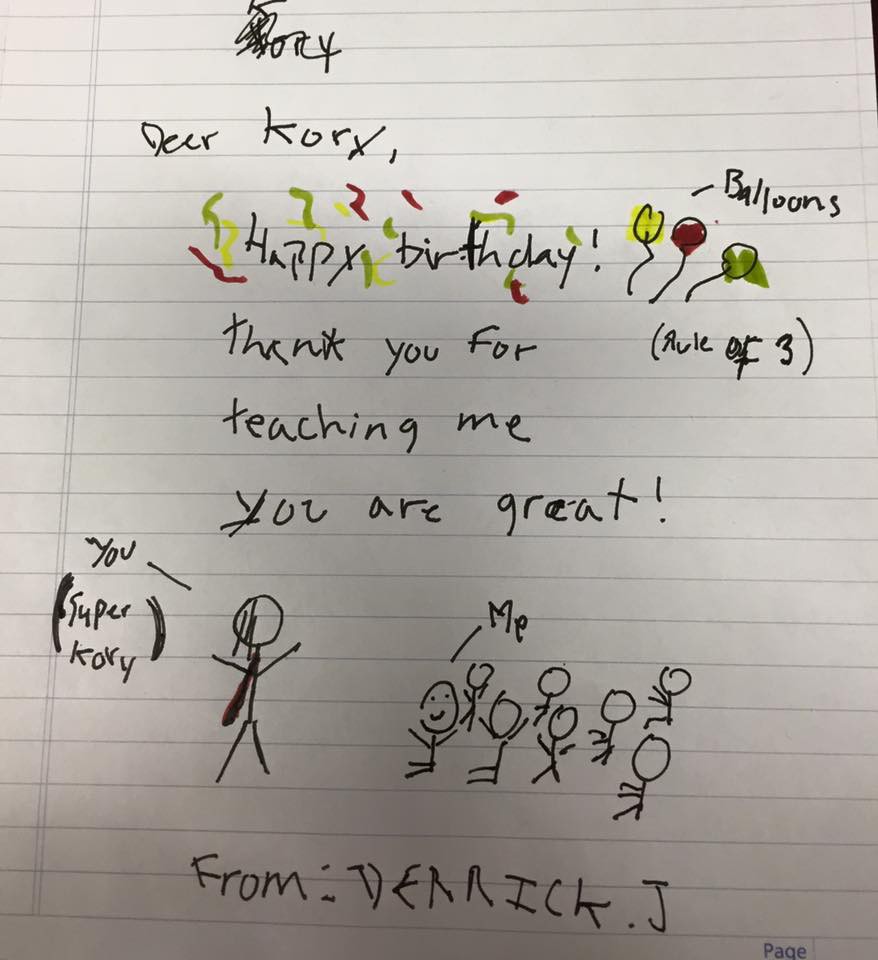 Kory
Deer Kory,
Happy birthday!
Balloons
(Rule of 3)
thank you For
teaching me
you are great!
You
(Super
Kory)
Me
From: DERRICK.J
Page